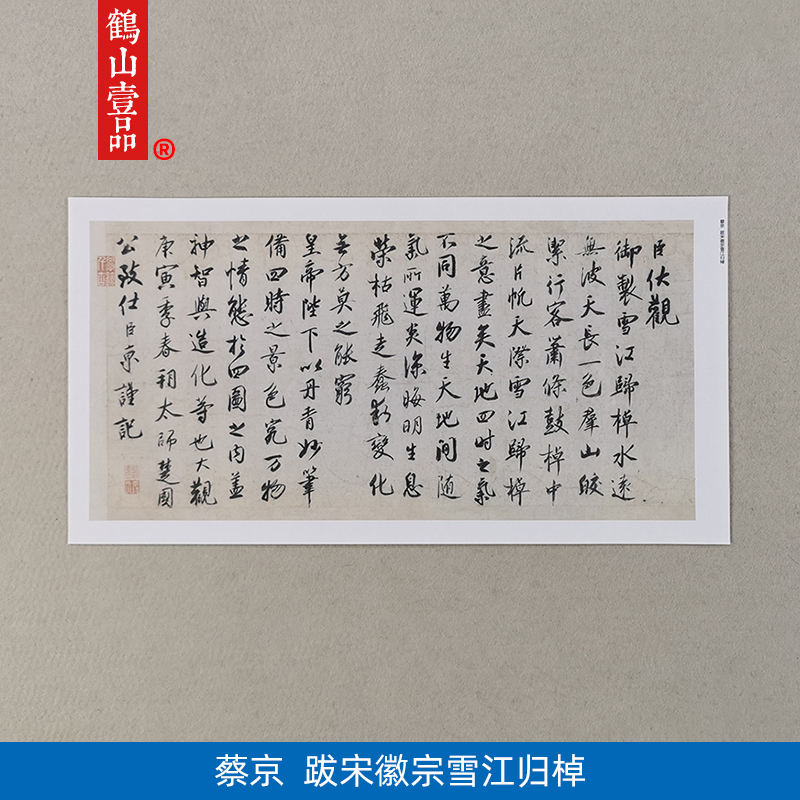 鶴山壹品
®
蔡京 跋宋徽宗雪江归棹
臣伏觀
御製雪江歸棹水遠
無波天長一色羣山皎
潔行客蕭條鼓棹中
流片帆天際雪江歸棹
之意盡矣天地四時之氣
不同萬物生天地間隨
氣所運炎涼晦明生息
榮枯飛走蠢動變化
無方莫之能窮
皇帝陛下以丹青妙筆
備四時之景色究万物
之情態於四圖之内蓋
神智與造化等也大觀
庚寅季春朔太師楚國
公致仕臣京謹記
蔡京 跋宋徽宗雪江归棹